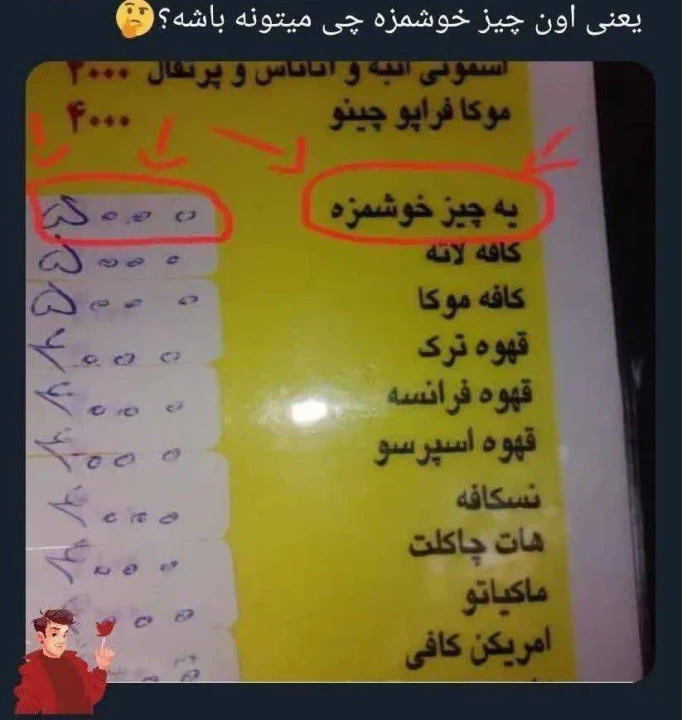 یعنی اون چیز خوشمزه چی میتونه باشه؟🤔
اسموتی انبه و آناناس و پرتقال ۳۰۰۰
موکا فراپو چینو ۴۰۰۰
یه چیز خوشمزه ۵۰۰۰
کافه لاته ۵۰۰۰
کافه موکا ۵۰۰۰
قهوه ترک ۲۰۰۰
قهوه فرانسه ۲۰۰۰
قهوه اسپرسو ۲۰۰۰
نسکافه ۲۰۰۰
هات چاکلت ۲۰۰۰
ماکیاتو
امریکن کافی